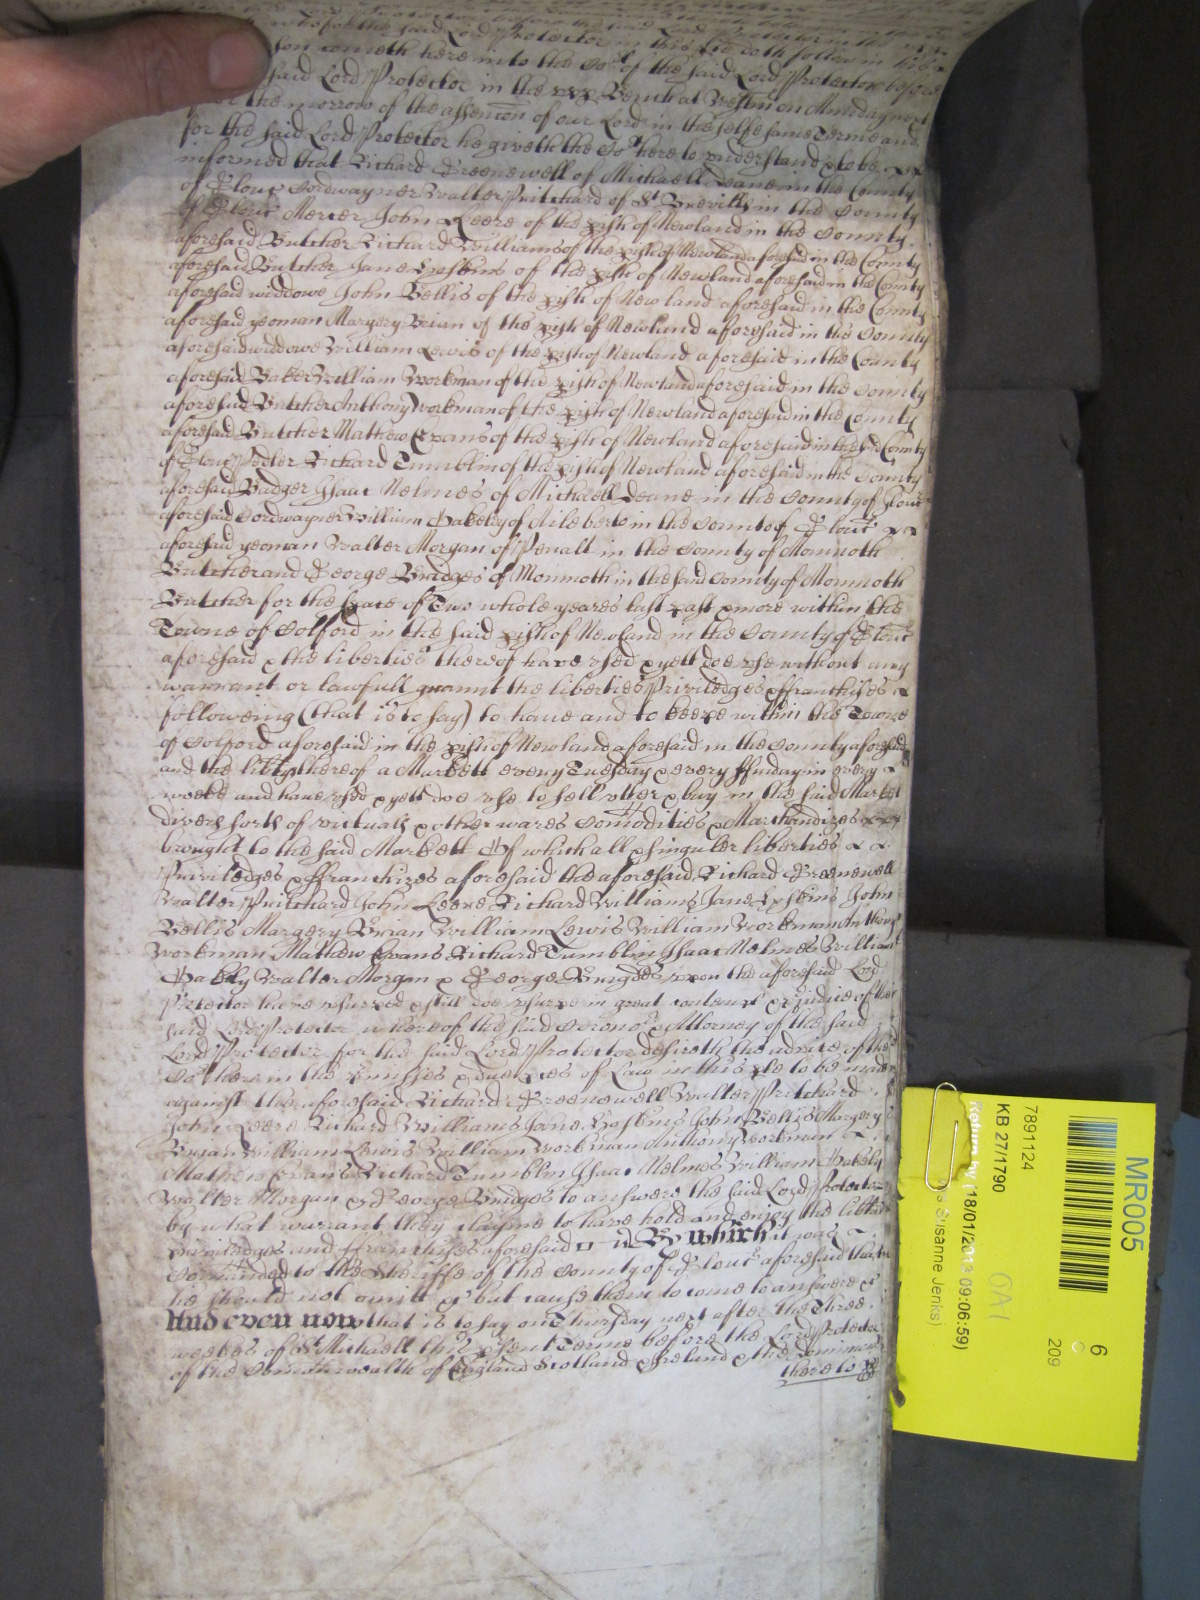 who for the said Lord Protector in this
cometh here into the Cort of the said Lord Protector before
said Lord Protector in the upp Bench at Westmr on Munday next
the morrow of the assencon of our Lord in the selfe same Terme and
for the said Lord Protector he giveth the Cort here to understand & to be
informed that Richard Greenewell of Michaell Deane in the County
of Glouc Cordwayner Walter Pritchard of St Brevills in the County
of Glouc Mercer John of the pish of Newland in the County
aforesaid Butcher Richard Williams of the pish of Newland aforesaid in the County
aforesaid Butcher Jane of the pish of Newland aforesaid in the County
aforesaid widdowe John Bellis of the pish of Newland aforesaid in the County
aforesaid yeoman Margery Brian of the pish of Newland aforesaid in the County
aforesaid widdowe William Lewis of the pish of Newland aforesaid in the County
aforesaid Baker William Workman of the pish of Newland aforesaid in the County
aforesaid Butcher Anthony Workman of the pish of Newland aforesaid in the County
aforesaid Butcher Mathew Evans of the pish of Newland aforesaid in the sd County
of Glouc Pedler Richard Tumblin of the pish of Newland aforesaid in the County
aforesaid Badger Isaac Melmes of Michaell Deane in the County of Glouc
aforesaid Cordwayner William Hakely of Ailberto in the County of Glouc
aforesaid yeoman Walter Morgan of Penalt in the County of Monmoth
Butcher and George Bridges of Monmoth in the said County of Monmoth
Butcher for the space of Two whole yeares last past & more within the
Towne of Colford in the said pish of Newland in the County of Glouc
aforesaid & the liberties thereof have used & yett doe use without any
warrant or lawfull graunt the liberties Priviledges & ffranchises
followeing (that is to say) to have and to keepe within the Towne
of Colford aforesaid in the pish of Newland aforesaid in the County aforesaid
and the libty thereof a Markett every Tuesday & every ffriday in every
weeke and have used & yett doe use to sell utter & buy in the said Market
divers sorts of victuals & other wares Comodities & Marchandizes
brought to the said Markett Of which all & singuler liberties
Priviledges & ffranchizes aforesaid the aforesaid Richard Greenewell
Walter Pritchard John Richard Williams Jane John
Bellis Margery Brian William Lewis William Workman Anthony
Workman Mathew Evans Richard Tumblin Isaac Melmes William
Hakely Walter Morgan & George Bridges upon the aforesaid Lord
Protector have usurped & still doe usurpe in great contempt & pjudice of the
said Lord Protector whereof the said Coronor & Attorney of the said
Lord Protector for the said Lord Protector desireth the advice of the
Cort here in the pmisses & due pces of Law in this pte to be made
against the aforesaid Richard Greenewell Walter Pritchard
John Richard Williams Jane John Bellis Margery
Brian William Lewis William Workman Anthony Workman
Mathew Evans Richard Tumblin Isaac Melmes William Hakely
Walter Morgan & George Bridges to answere the said Lord Protector
by what warrant they clayme to have hold and enjoy the libties
priviledges and ffranchises aforesaid By which it was
Comanded to the Sheriffe of the County of Glouc aforesaid that
he should not omitt &c but cause them to come to answere &c
And even now that is to say on Thursday next after the Three
weekes of St Michaell this psent Terme before the Lord Protector
of the Comonwealth of England Scotland & Ireland & the Dominions
there to
MR005
7891124
KB 27/1790
Return by (18/01/2013 09:06:59)
Susanne Jenks)
6
209